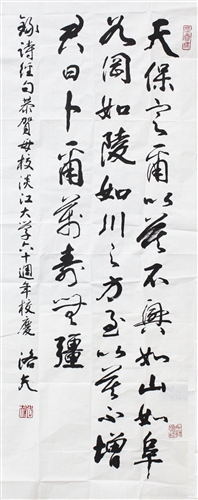 天保定爾以莫不興如山如阜
如岡如陵如川之方至以莫不增
君曰卜爾萬壽無疆
錄詩經句恭賀母校淡江大学六十週年校慶 洛夫